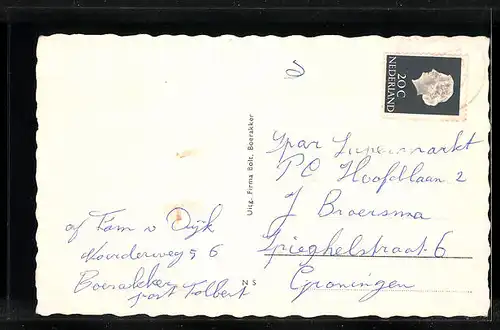 NEDERLAND
20 C
Uitg. Firma Bolt, Boerakker
Spar Supermarkt
PC Hooftlaan 2
J Broersma
Spieghelstraat 6
Groningen
af Fam v Dijk
Noorderweg 6
Boerakker
post Tolbert
N S